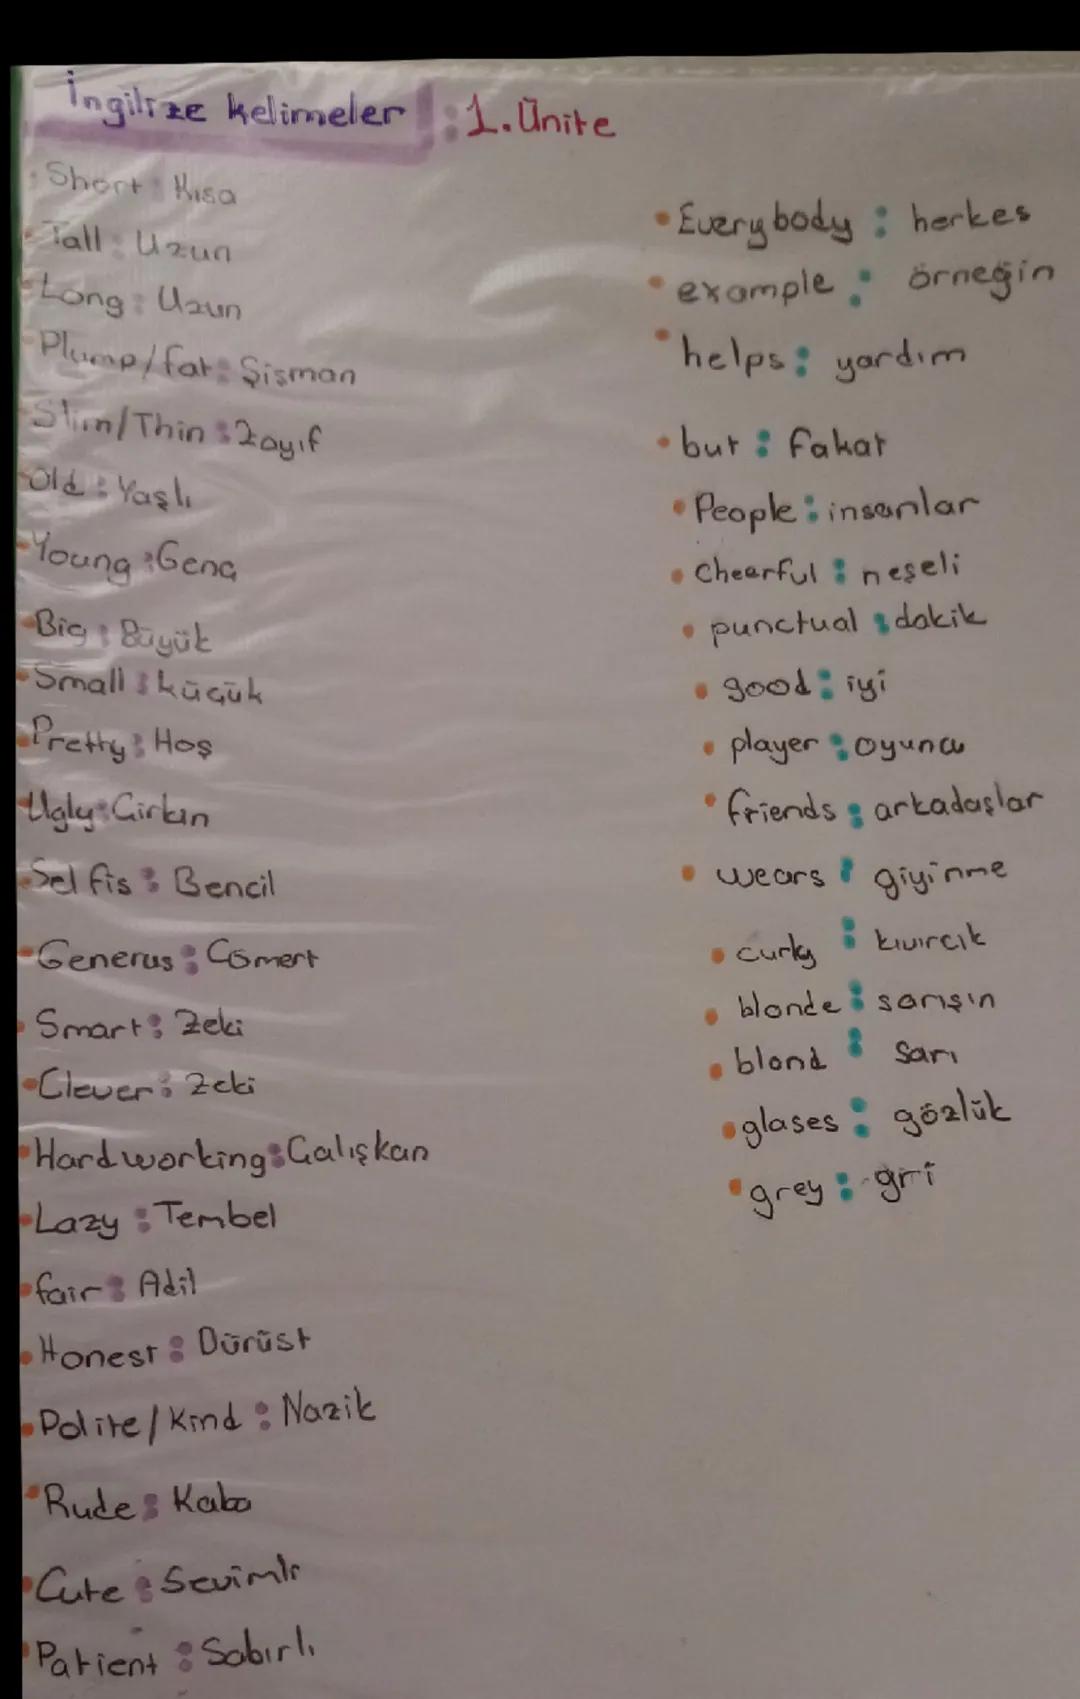 İngilizce kelimeler : 1. Ünite
Short : Kısa
Tall : Uzun
Long : Uzun
Plump/fat : Şişman
Slim/Thin : Zayıf
Old : Yaşlı
Young : Genç
Big : Büyük
Small : küçük
Pretty : Hoş
Ugly : Çirkin
Selfis : Bencil
Generus : Cömert
Smart : Zeki
Clever : Zeki
Hardworking : Çalışkan
Lazy : Tembel
fair : Adil
Honest : Dürüst
Polite/Kind : Nazik
Rude : Kaba
Cute : Sevimli
Patient : Sabırlı
Everybody : herkes
example : örneğin
helps : yardım
but : fakat
People : insanlar
Cheerful : neşeli
punctual : dakik
good : iyi
player : oyuncu
friends : arkadaşlar
wears : giyinme
curly : kıvırcık
blonde : sarışın
blond : sarı
glases : gözlük
grey : gri